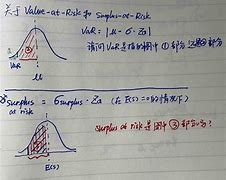 关于 Value-at-Risk 和 Surplus-at-Risk
VaR = |μ - σ·Zα|
请问 VaR 是指的图中 ① 部分 还是②部分
②
①
VaR
μ
σsurplus = σsurplus · Zα (在 E(S)=0的情况下)
Surplus at risk 是图中 ③ 部分 吗?
③
E(S)